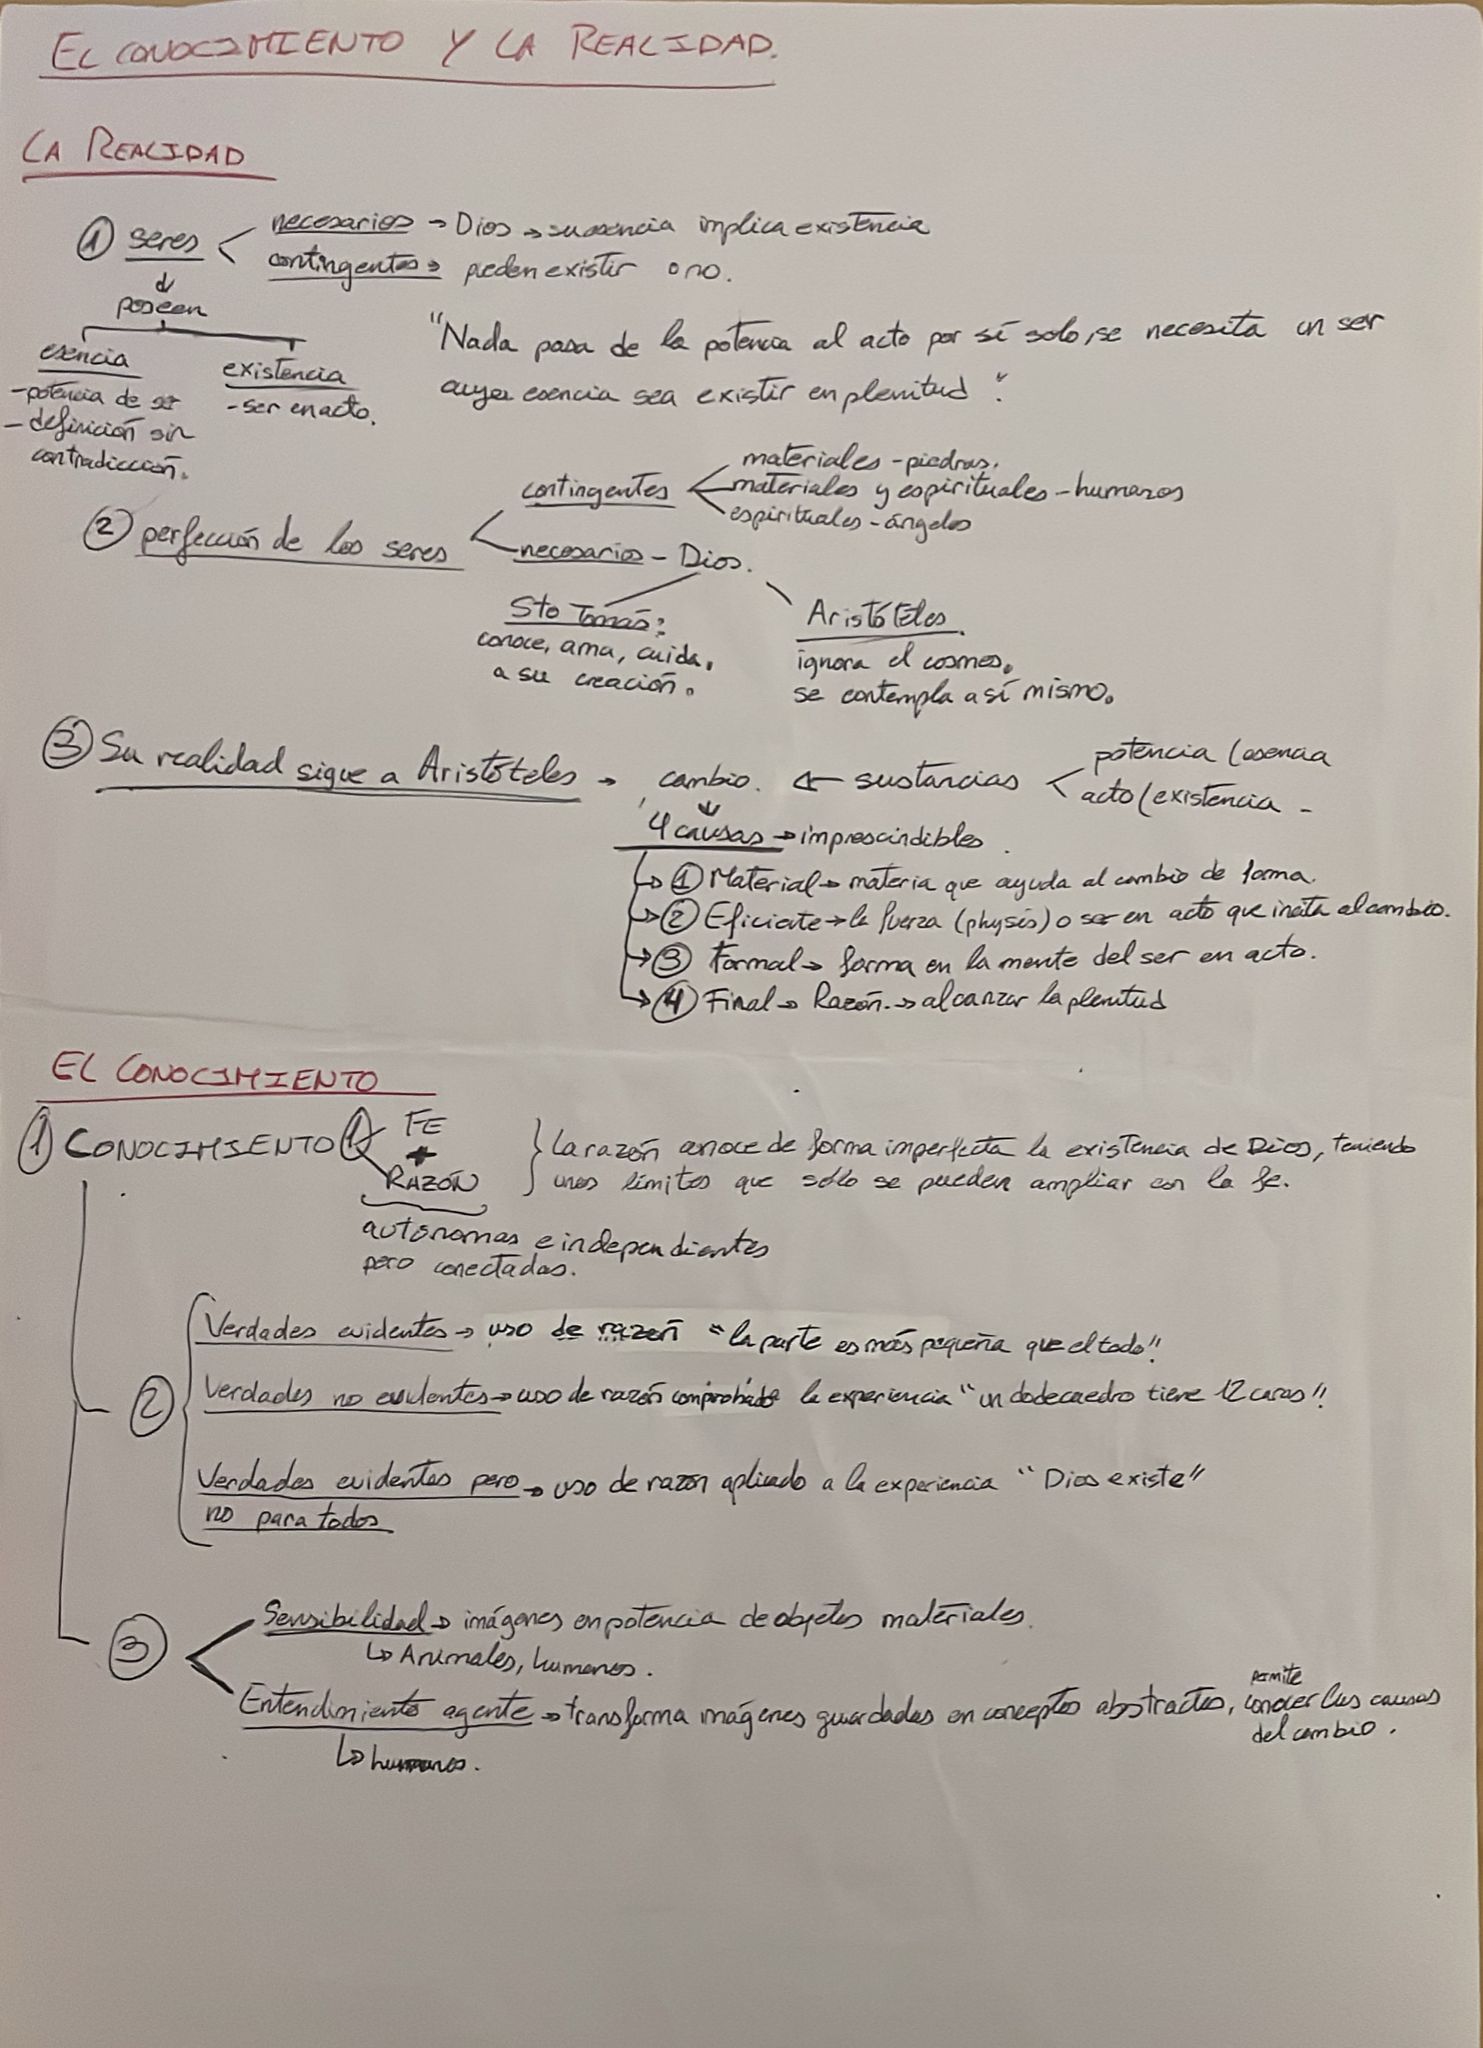 EL CONOCIMIENTO Y LA REALIDAD.
LA REALIDAD
① seres
necesarios → Dios → su esencia implica existencia
contingentes → pueden existir o no.
poseen
esencia
- potencia de ser
- definición sin
contradicción.
existencia
- ser en acto.
"Nada pasa de la potencia al acto por sí solo, se necesita un ser
cuya esencia sea existir en plenitud".
② perfección de los seres
contingentes
materiales - piedras.
materiales y espirituales - humanos
espirituales - ángeles
necesarios - Dios.
Sto Tomás:
conoce, ama, cuida.
a su creación.
Aristóteles.
ignora el cosmos.
se contempla a sí mismo.
③ Su realidad sigue a Aristóteles → cambio. ← sustancias
potencia (esencia
acto (existencia -
4 causas → imprescindibles.
↳ ① Material → materia que ayuda al cambio de forma.
↳ ② Eficiente → la fuerza (physis) o ser en acto que incita al cambio.
↳ ③ Formal → forma en la mente del ser en acto.
↳ ④ Final → Razón. → alcanzar la plenitud
EL CONOCIMIENTO
① CONOCIMIENTO ①
FE
+
RAZÓN
} La razón conoce de forma imperfecta la existencia de Dios, teniendo
unos límites que sólo se pueden ampliar con la fe.
autónomas e independientes
pero conectadas.
②
Verdades evidentes → uso de razón "la parte es más pequeña que el todo".
Verdades no evidentes → uso de razón la experiencia "un dodecaedro tiene 12 caras".
Verdades evidentes pero → uso de razón aplicado a la experiencia "Dios existe"
no para todos
③
Sensibilidad → imágenes en potencia de objetos materiales.
↳ Animales, humanos.
Entendimiento agente → transforma imágenes guardadas en conceptos abstractos, permite conocer las causas
del cambio.
↳ humanos.